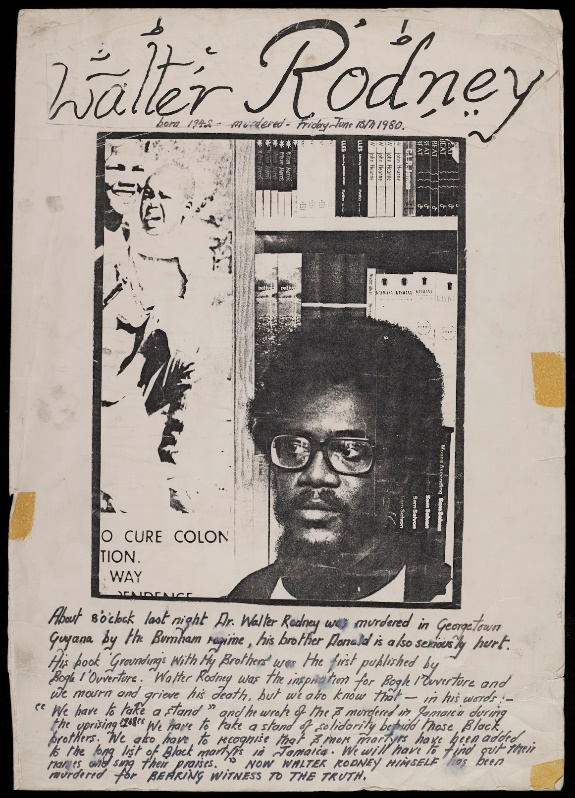 Walter Rodney
born 1942 - murdered - Friday June 13th 1980.
O CURE COLON
TION.
WAY
About 8 o'clock last night Dr. Walter Rodney was murdered in Georgetown
Guyana by the Burnham regime, his brother Donald is also seriously hurt.
His book 'Groundings With My Brothers' was the first published by
Bogle L'Ouverture. Walter Rodney was the inspiration for Bogle L'Ouverture and
we mourn and grieve his death, but we also know that — in his words :-
"We have to take a stand" and he wrote of the 3 murdered in Jamaica during
the uprising 1968 "We have to take a stand of solidarity behind those Black
brothers. We also have to recognise that 3 more martyrs have been added
to the long list of Black martyrs in Jamaica. We will have to find out their
names and sing their praises." NOW WALTER RODNEY HIMSELF has been
murdered for BEARING WITNESS TO THE TRUTH.